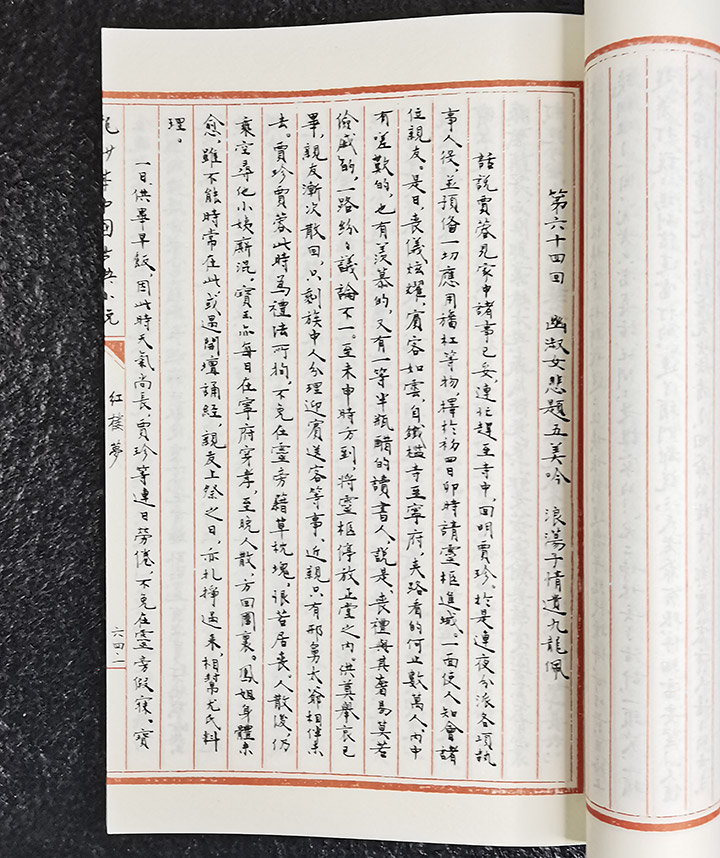 第六十四回　幽淑女悲題五美吟　浪蕩子情遺九龍佩
話說賈蓉見家中諸事已妥,連忙趕至寺中,回明賈珍。於是連夜分派各項執
事人役,並預備一切應用旛杠等物,擇於初四日卯時請靈柩進城。一面使人知會諸
位親友。是日,喪儀炫耀,賓客如雲,自鐵檻寺至寧府,夾路看的何止數萬人,內中
有嗟歎的,也有羨慕的,又有一等半瓶醋的讀書人,說是、喪禮與其奢易莫若
儉戚的,一路紛々議論不一。至未申時方到,將靈柩停放正堂之內。供奠舉哀已
畢,親友漸次散回,只剩族中人分理迎賓送客等事。近親只有邢舅太爺相伴未
去。賈珍賈蓉此時為禮法所拘,不免在靈旁藉草枕塊,恨苦居喪。人散後,仍
乘空尋他小姨廝混。寶玉亦每日在寧府穿孝,至晚人散,方回園裏。鳳姐身體未
愈,雖不能時常在此,或遇開壇誦經,親友上祭之日,亦扎掙過來,相幫尤氏料
理。
一日,供畢早飯,因此時天氣尚長,賈珍等連日勞倦,不免在靈旁假寐。寶
紅樓夢
六四.一